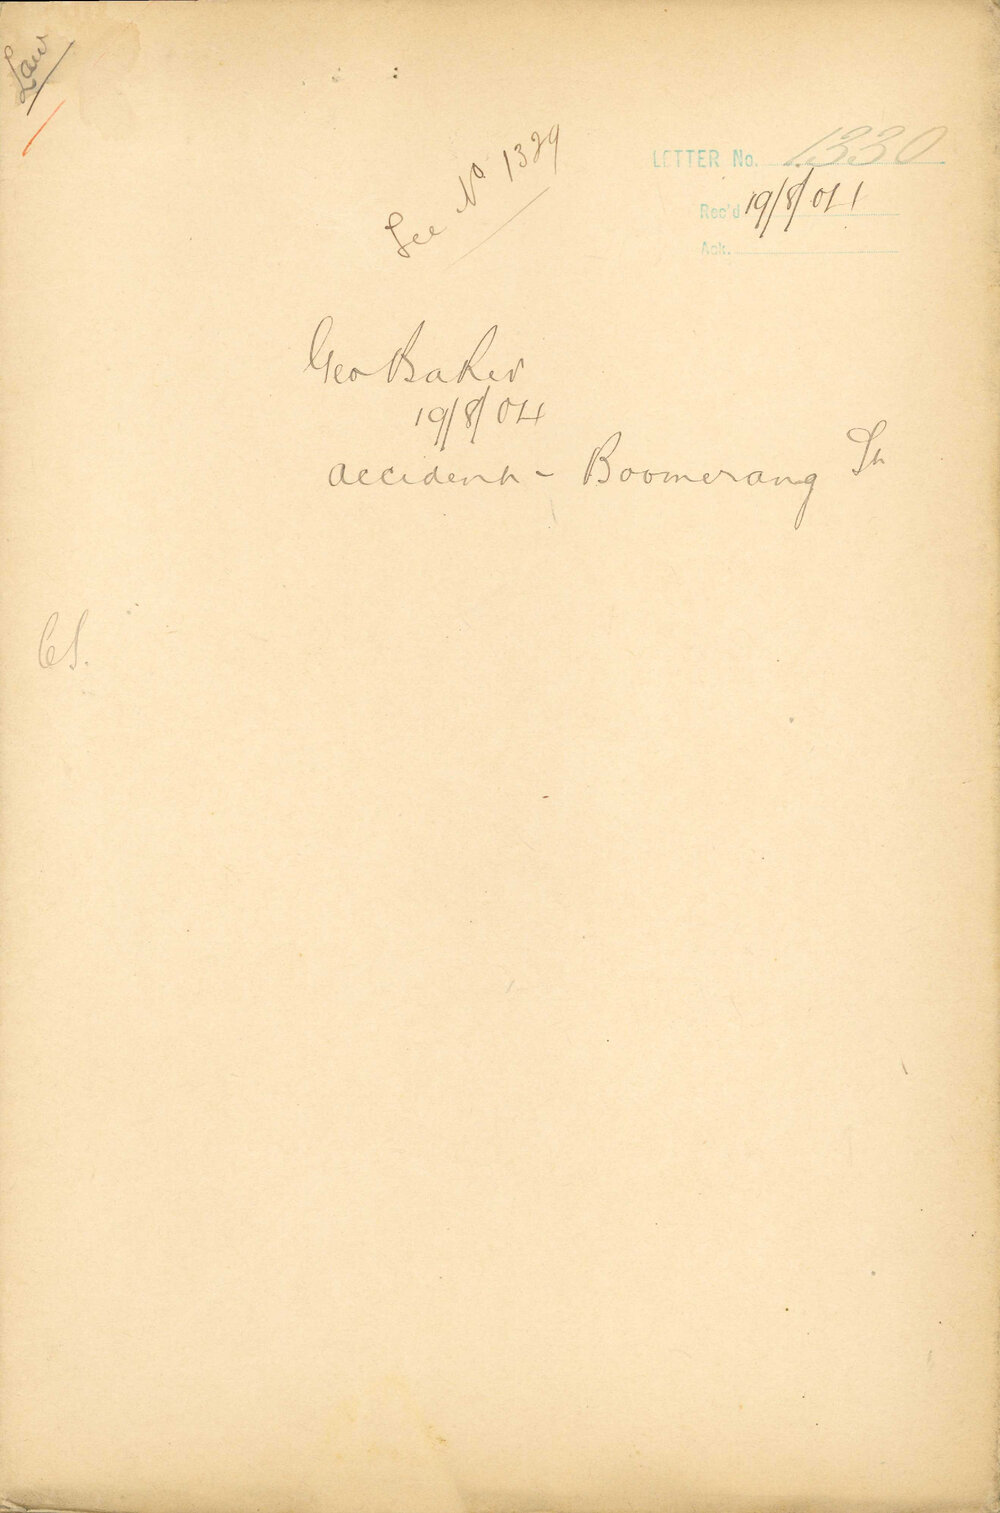 Law
See No 1329
LETTER No. 1330
Rec'd 19/8/04
Ack.
Geo Baker
19/8/04
accident - Boomerang St
CS.